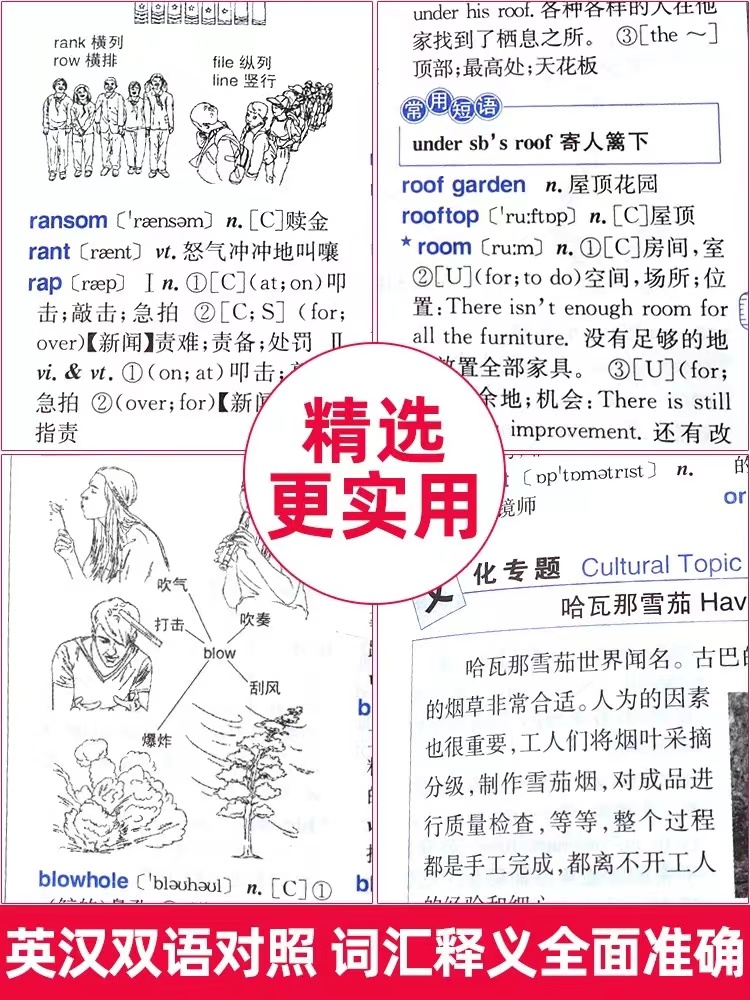 rank 横列
row 横排
file 纵列
line 竖行
ransom〔ˈrænsəm〕n. [C]赎金
rant〔rænt〕vt. 怒气冲冲地叫嚷
rap〔ræp〕Ⅰ n. ①[C](at;on)叩
击;敲击;急拍 ②[C;S] (for;
over)【新闻】责难;责备;处罚 Ⅱ
vi. & vt. ①(on;at)叩击;
急拍 ②(over;for)【新
指责
under his roof. 各种各样的人在他
家找到了栖息之所。 ③[the ～]
顶部;最高处;天花板
常用短语
under sb's roof 寄人篱下
roof garden n. 屋顶花园
rooftop〔ˈruːftɒp〕n. [C]屋顶
★room〔ruːm〕n. ①[C]房间,室
②[U](for;to do)空间,场所;位
置:There isn't enough room for
all the furniture. 没有足够的地
放置全部家具。 ③[U](for;
余地;机会:There is still
improvement. 还有改
精选
更实用
吹气
打击
吹奏
blow
刮风
爆炸
blowhole〔ˈbləʊhəʊl〕n. [C]①
〔ɒpˈtɒmətrɪst〕n.
镜师
的
or
化专题 Cultural Topic
哈瓦那雪茄 Hav
哈瓦那雪茄世界闻名。古巴的
的烟草非常合适。人为的因素
也很重要,工人们将烟叶采摘
分级,制作雪茄烟,对成品进
行质量检查,等等,整个过程
都是手工完成,都离不开工人
英汉双语对照 词汇释义全面准确